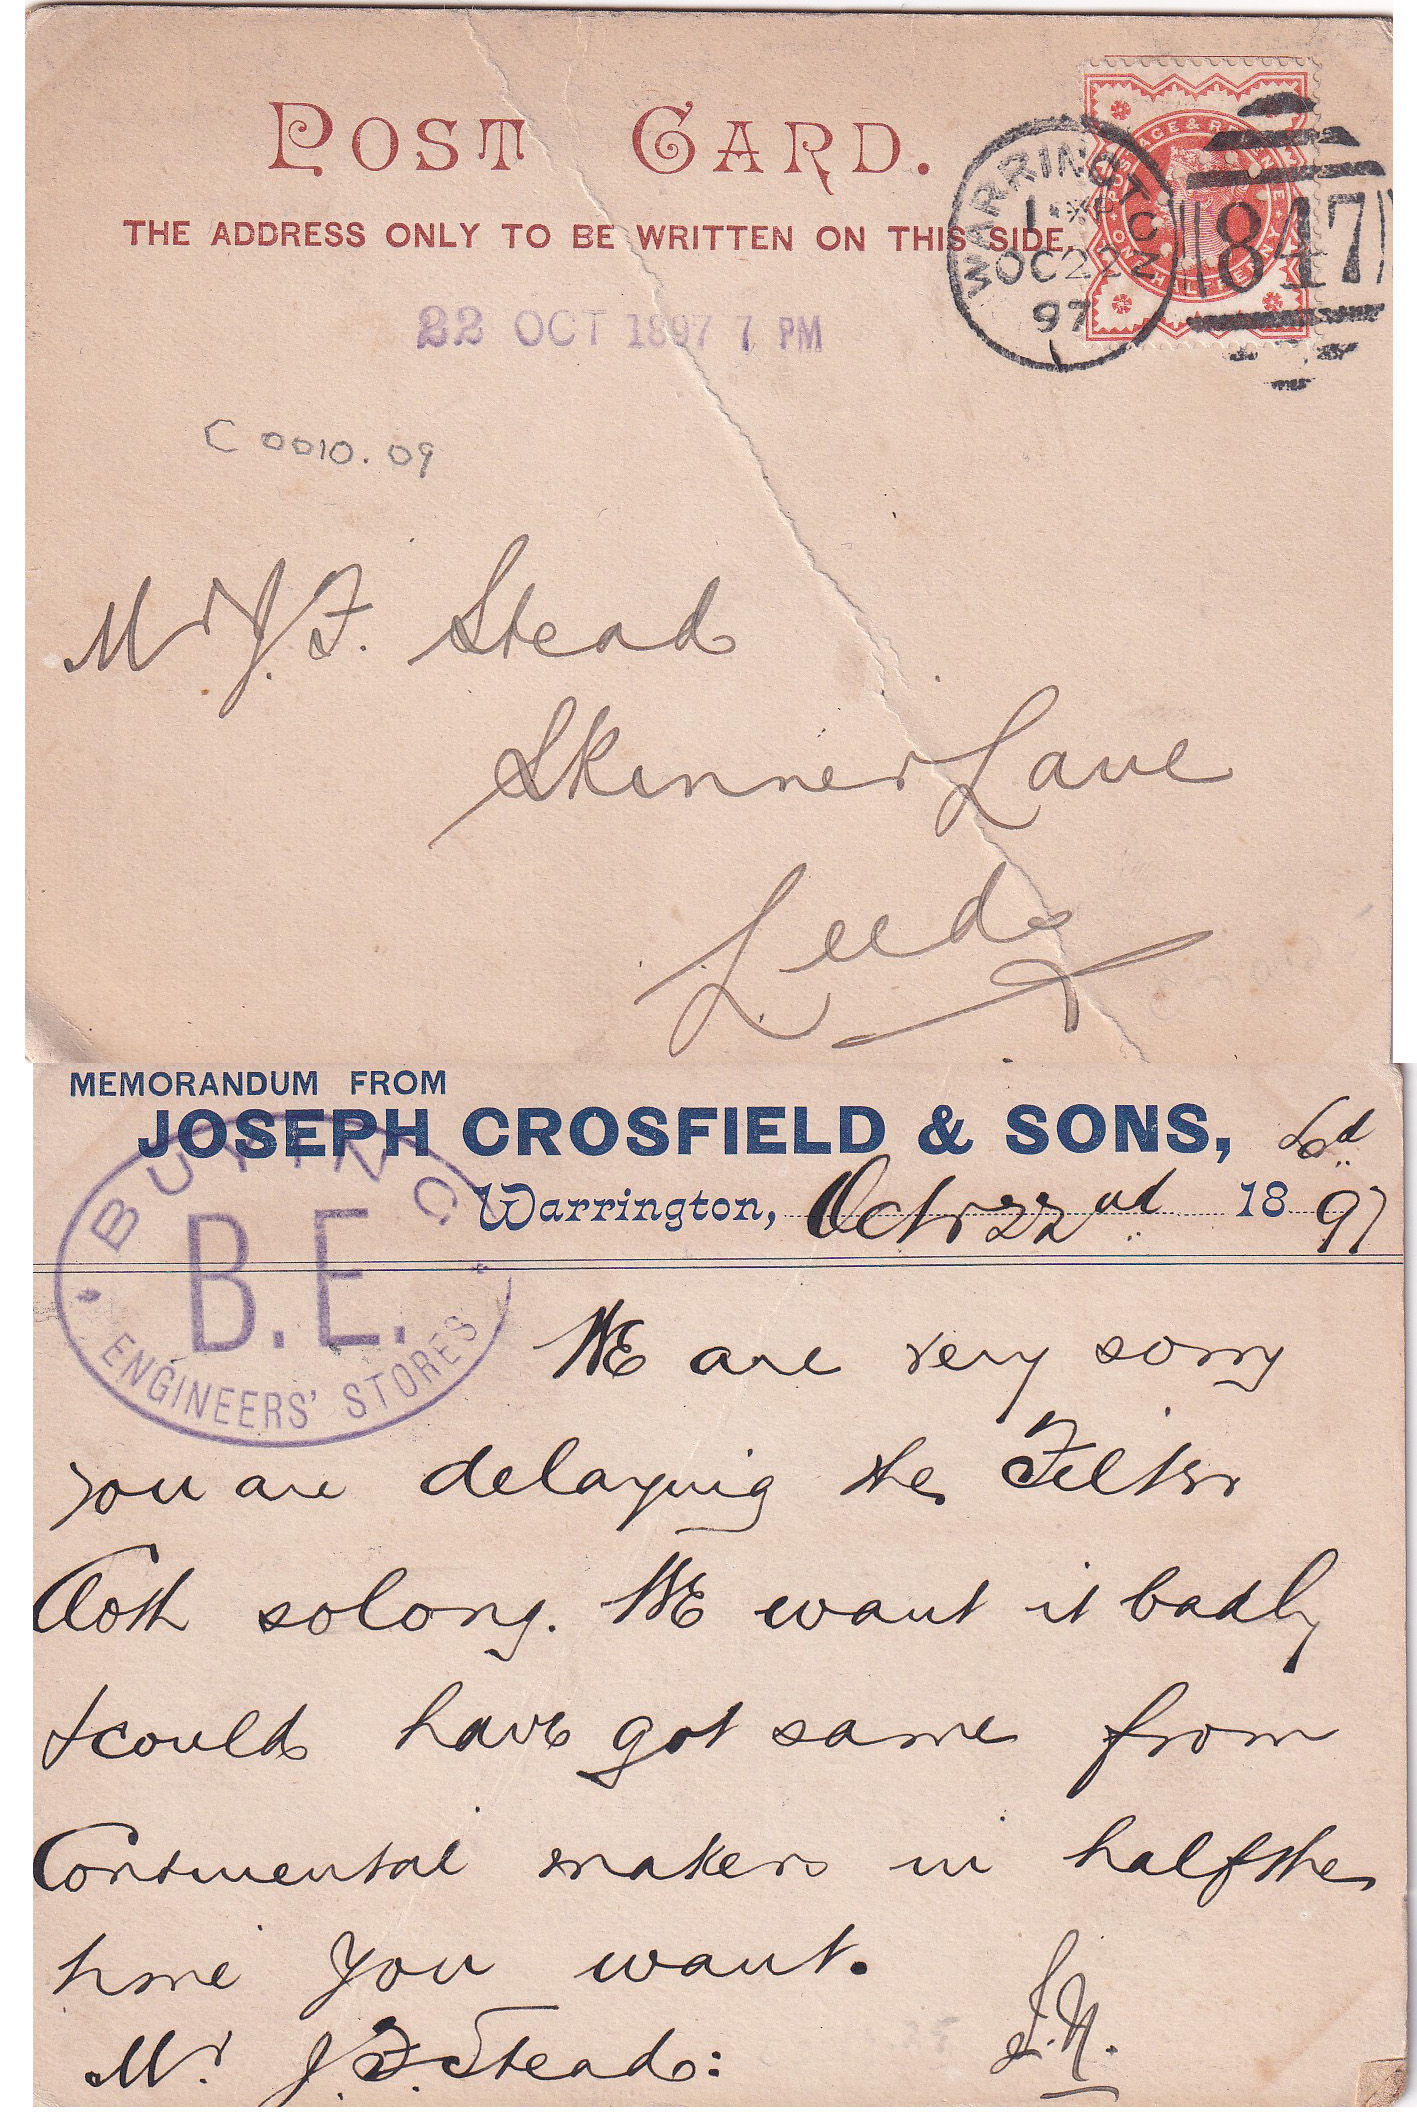 POST CARD.
THE ADDRESS ONLY TO BE WRITTEN ON THIS SIDE.
WARRINGTON
OC 22
97
1
847
POSTAGE & REVENUE
ONE HALFPENNY
22 OCT 1897 7 PM
C 0010.09
Mr J. F. Stead
Skinner Lane
Leeds
MEMORANDUM FROM
JOSEPH CROSFIELD & SONS, Ld
Warrington, Octr 22nd 1897
BUYING
B.E.
ENGINEERS' STORES
WE are very sorry
you are delaying the Filter
Cloth so long. WE want it badly
& could have got same from
Continental makers in half the
time you want.
Mr. J. F. Stead: